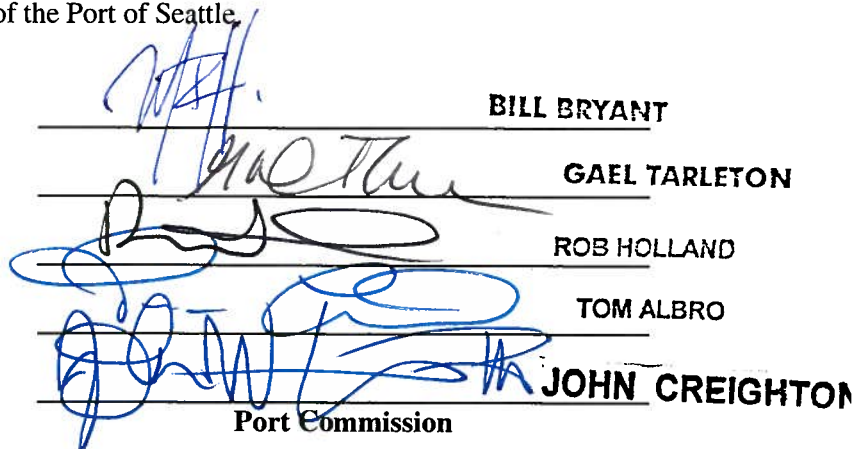 of the Port of Seattle
BILL BRYANT
GAEL TARLETON
ROB HOLLAND
TOM ALBRO
JOHN CREIGHTON
Port Commission